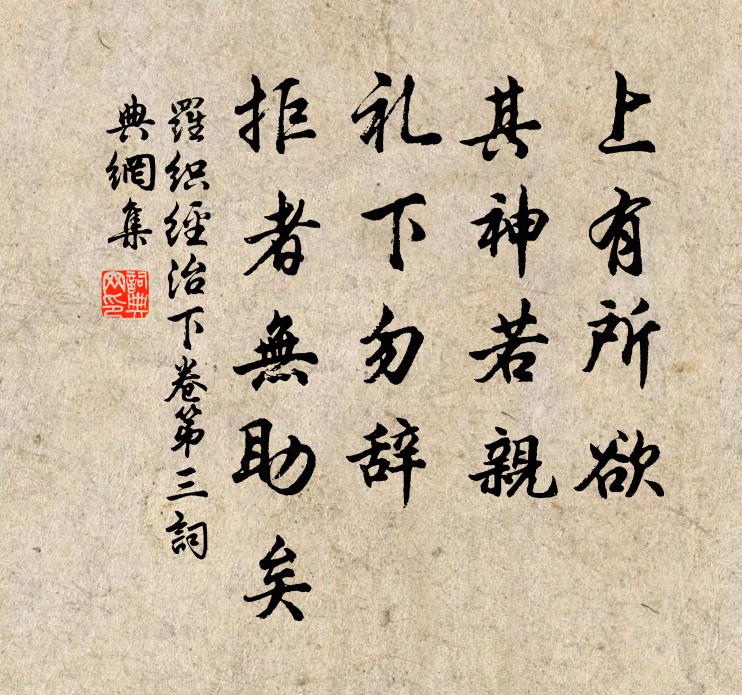 上有所欲
其神若親
礼下勿辞
拒者無助矣
羅织經治下卷第三詞
典網集
詞典网印